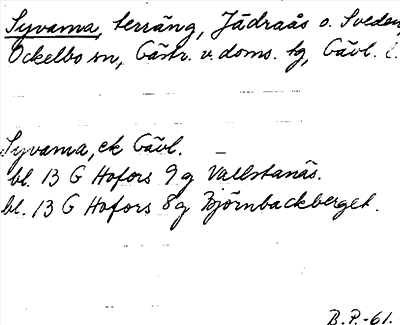 Syvarna, terräng, Jädraås o. Sveden,
Ockelbo sn, Gästr. v. doms. hg, Gävl. l.
Syvarna, ek Gävl.
bl. 13 G Hofors 9g Vallstanäs.
bl. 13 G Hofors 8g Björnbackberget.
B.P.-61.